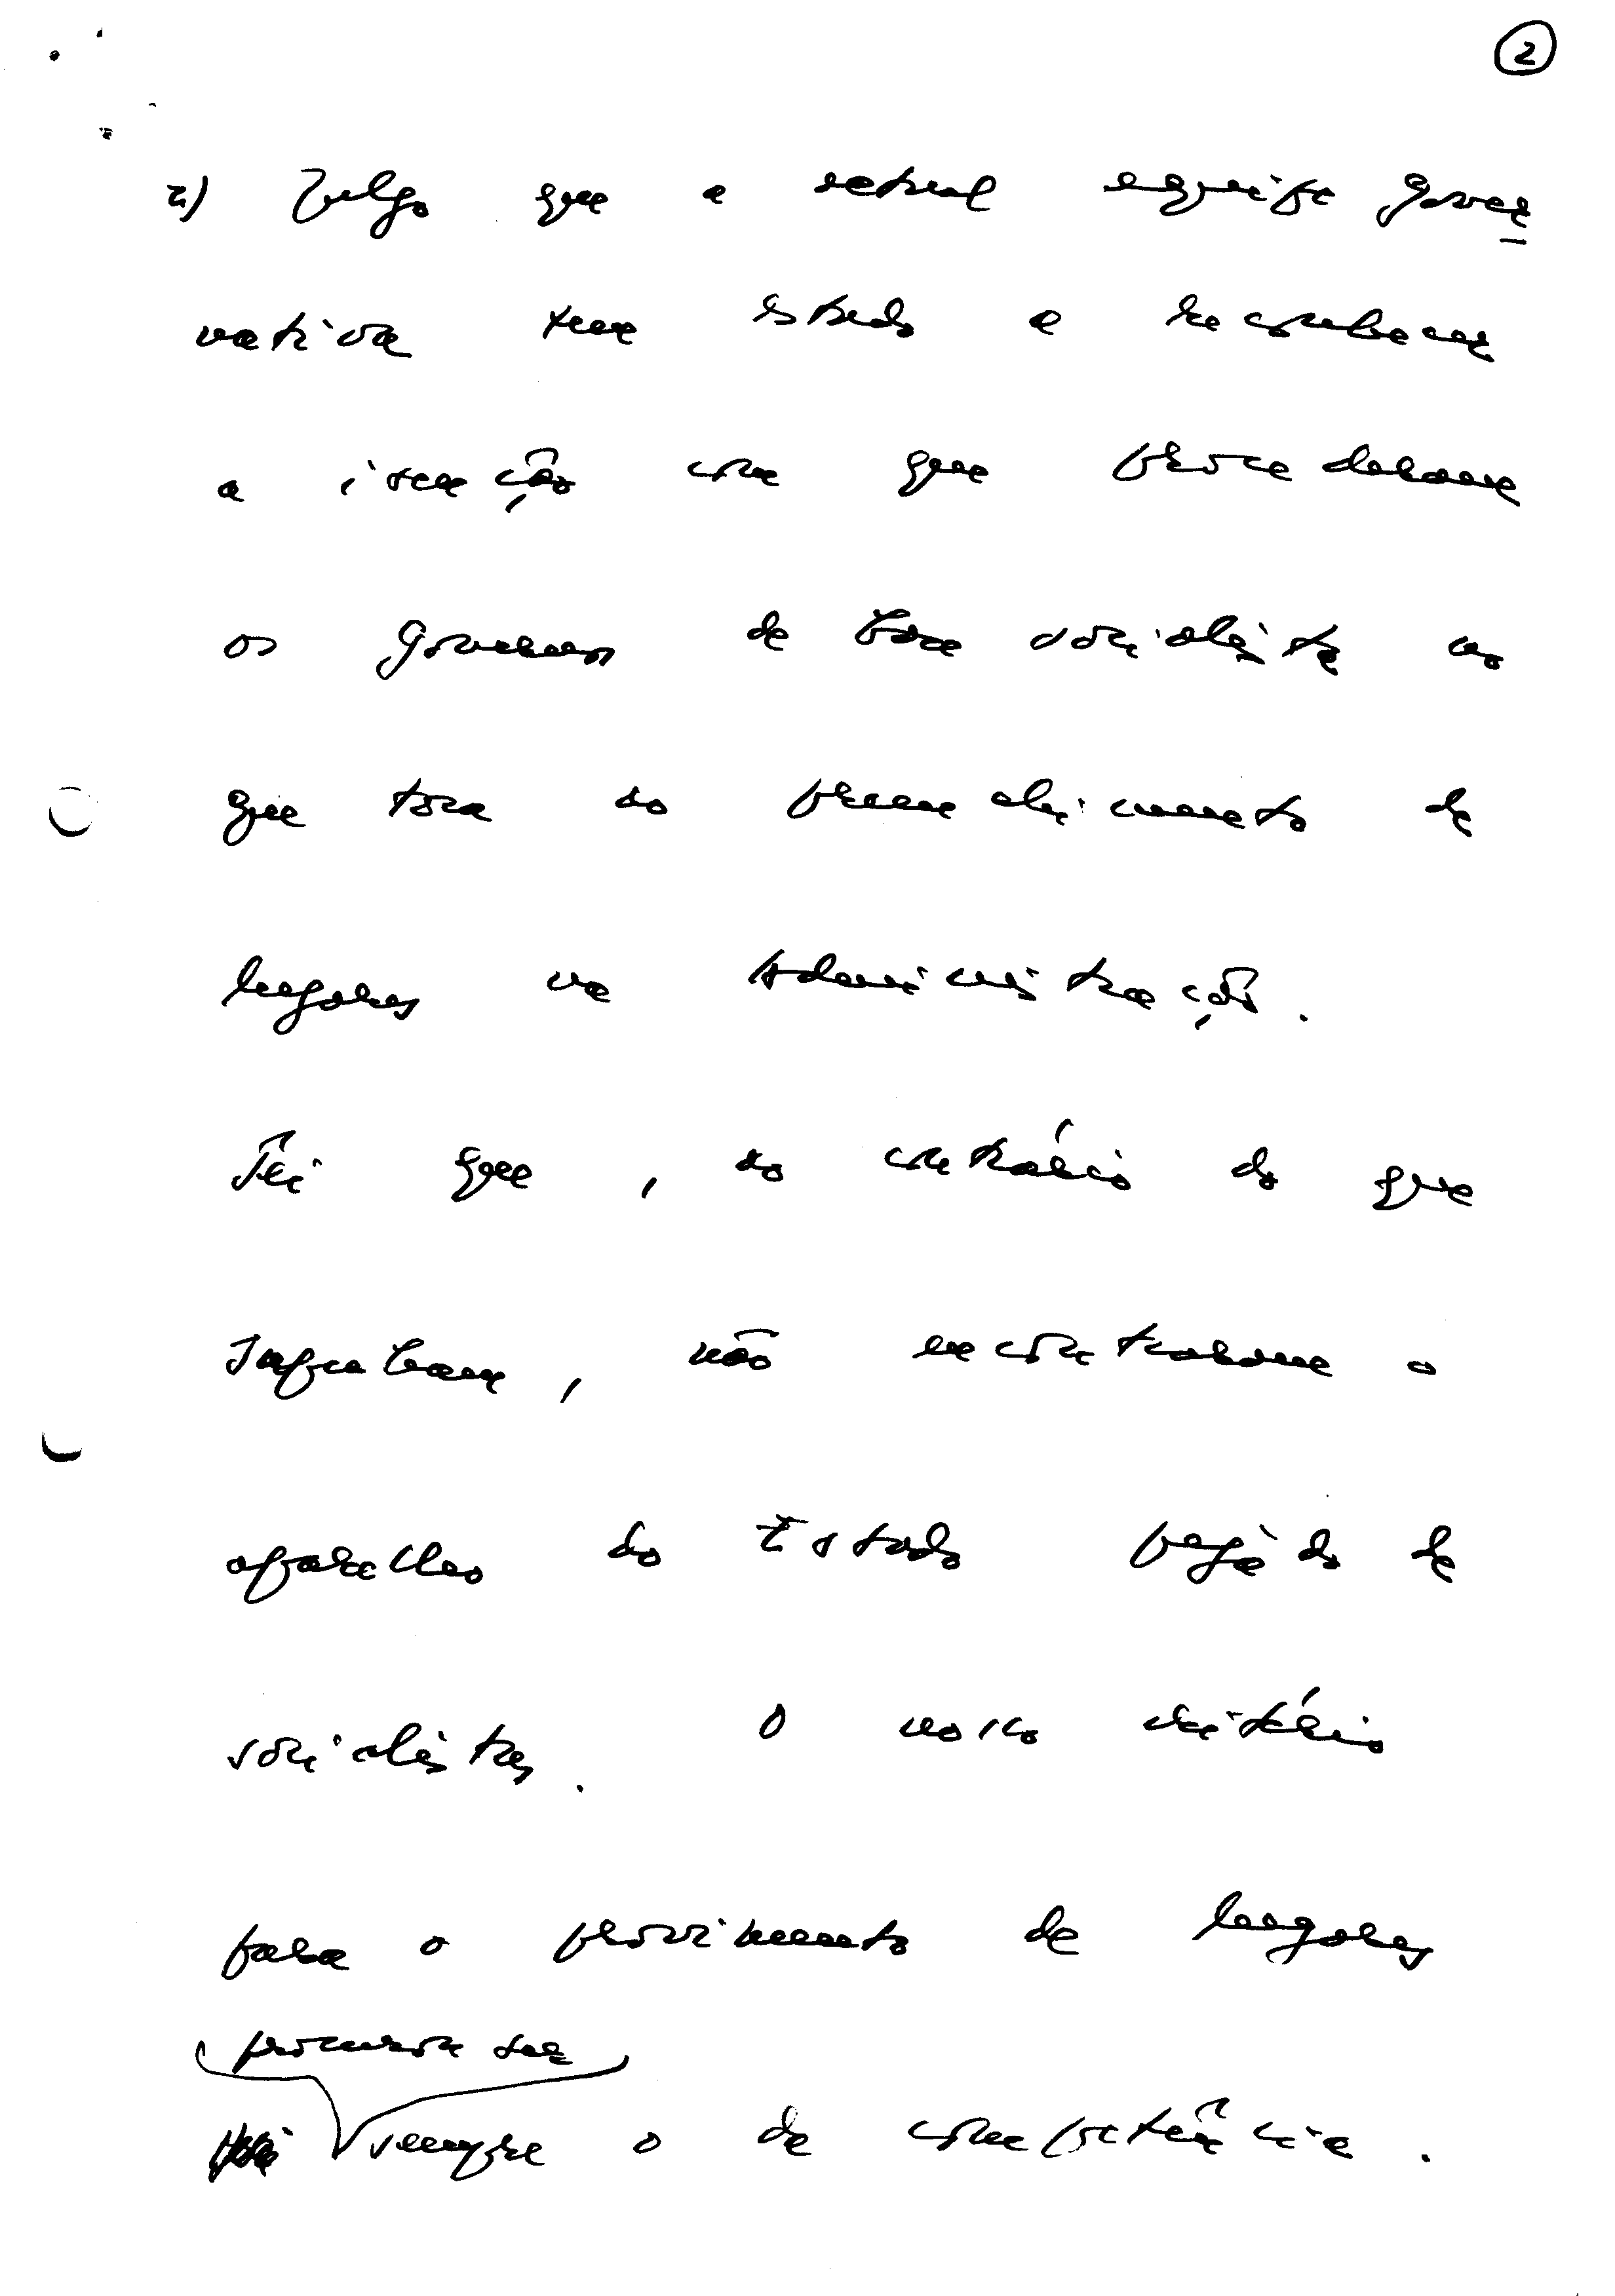 2
2) Julgo que a actual equipa gover
nativa tem estado a reconhecer
a isenção com que procederam
os governos de base socialista no
que toca ao preenchimento de
lugares na Administração.
Sei que, ao contrário do que
supunham, não encontraram o
aparelho do Estado pejado de
socialistas. O nosso critério
para o provimento de lugares
procurou ser
sempre o de competência.